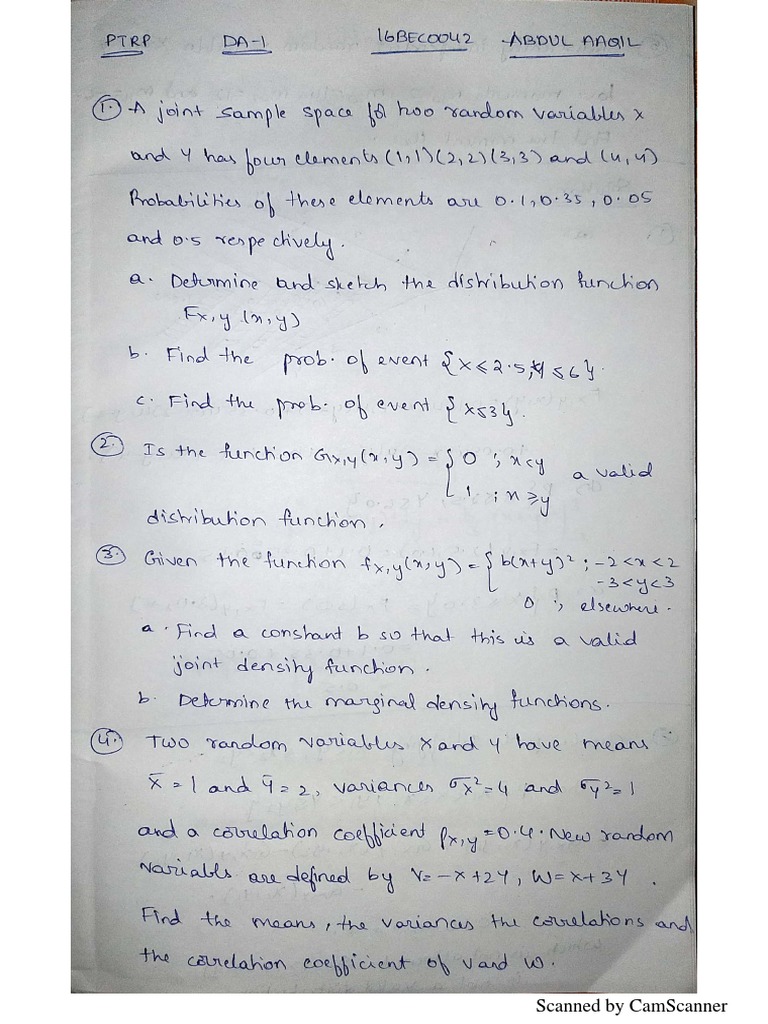 PTRP DA-1 16BEC0042 ABDUL AAQIL
1. A joint sample space for two random variables x
and Y has four elements (1,1) (2,2) (3,3) and (4,4)
Probabilities of these elements are 0.1, 0.35, 0.05
and 0.5 respectively.
a. Determine and sketch the distribution function
Fx,y (x,y)
b. Find the prob. of event {x≤2.5, Y≤6}.
c. Find the prob. of event {x≤3}.
2. Is the function Gx,y(x,y) = { 0 ; x<y
1 ; x≥y a valid
distribution function.
3. Given the function fx,y(x,y) = { b(x+y)² ; -2<x<2
-3<y<3
0 ; elsewhere.
a. Find a constant b so that this is a valid
joint density function.
b. Determine the marginal density functions.
4. Two random variables X and Y have means
x̄ = 1 and ȳ = 2, variances σx² = 4 and σy² = 1
and a correlation coefficient ρx,y = 0.4. New random
variables are defined by V = -x+2Y, W = x+3Y.
Find the means, the variances the correlations and
the correlation coefficient of V and W.
Scanned by CamScanner